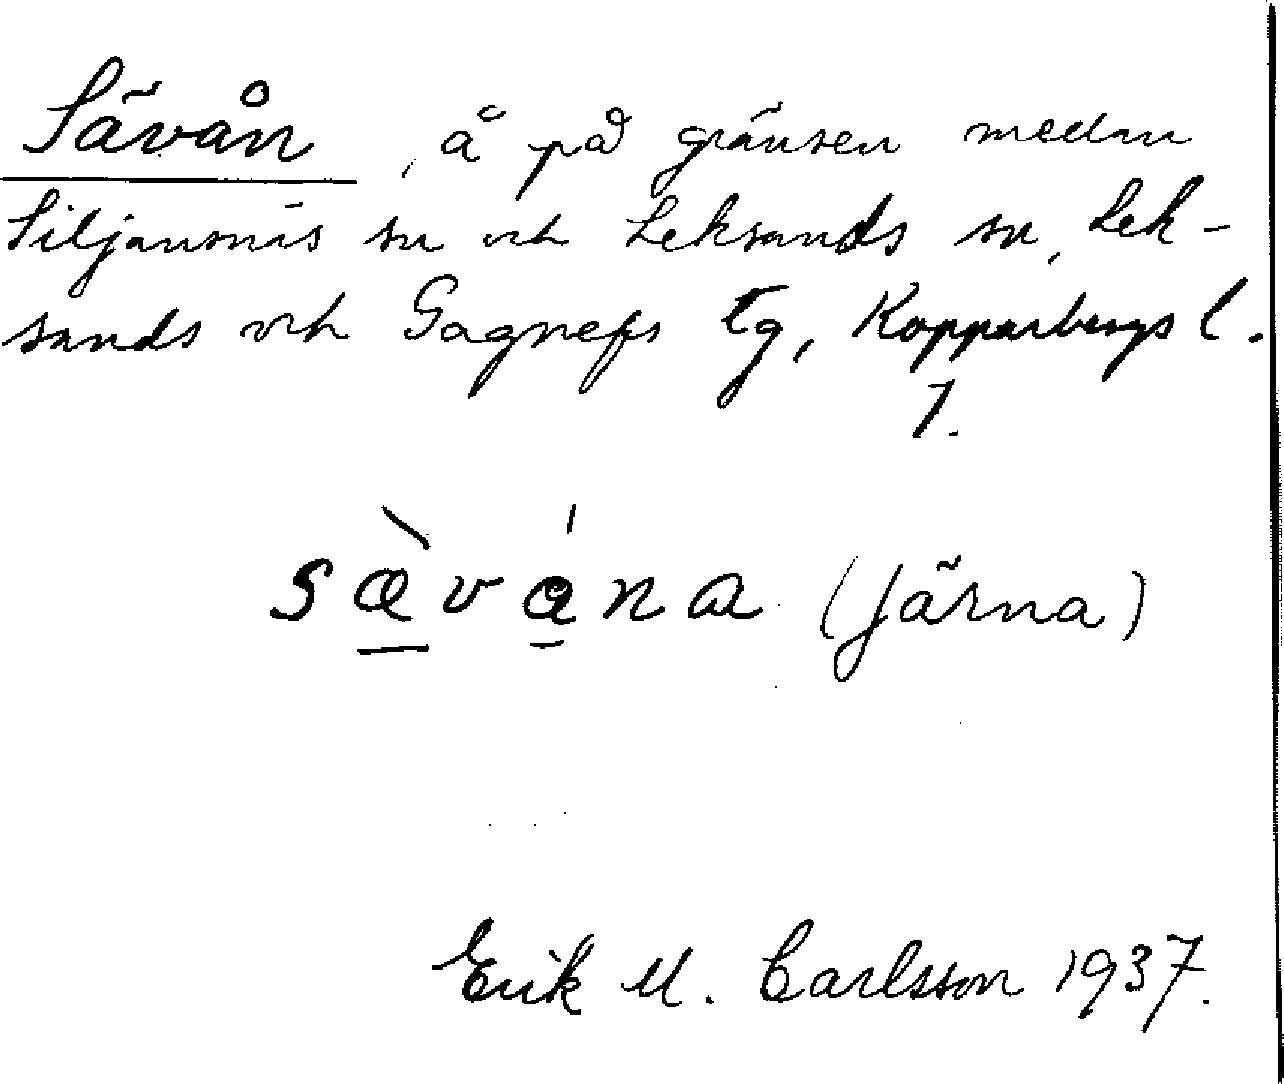 Sävån, å på gränsen mellan
Siljansnäs sn och Leksands sn, Lek-
sands och Gagnefs tg, Kopparbergs l.
1.
sæ̀vána (Järna)
Erik M. Carlsson 1937.